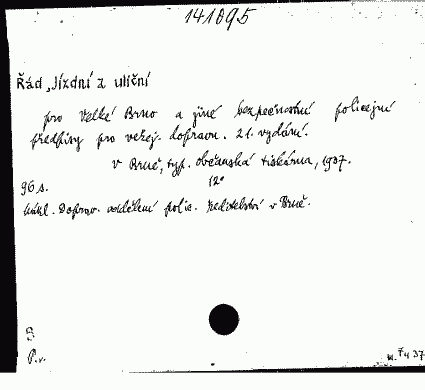 141095
Řád, Jízdní a uliční
pro Velké Brno a jiné bezpečnostní policejní
předpisy pro veřej. dopravu. 21. vydání.
v Brně, typ. občanská tiskárna, 1937.
96 s. 12°
Nákl. Doprav. oddělení polic. ředitelství v Brně.
P.v.